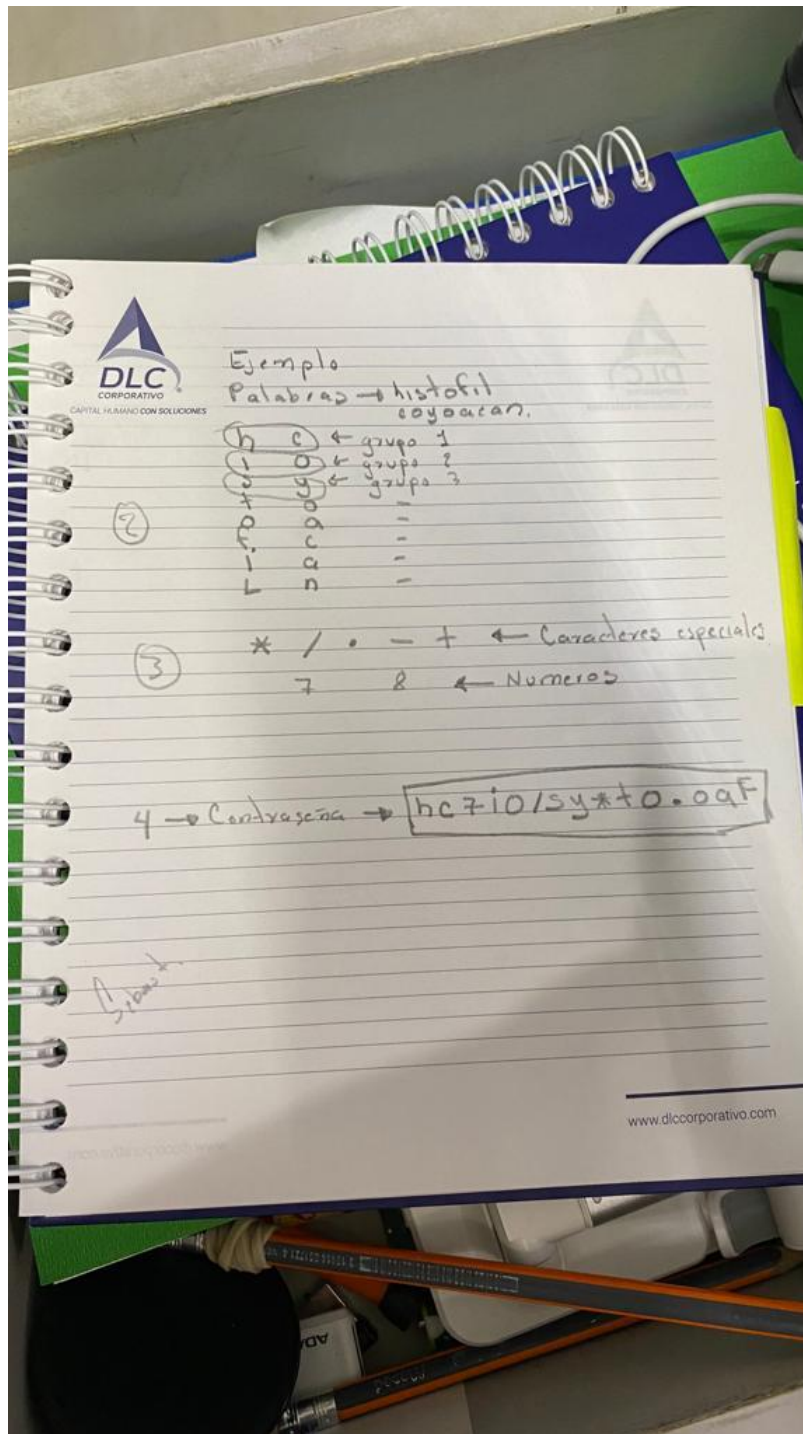 DLC
CORPORATIVO
CAPITAL HUMANO CON SOLUCIONES
Ejemplo
Palabras → histofil
coyoacan.
h c ← grupo 1
i o ← grupo 2
s y ← grupo 3
t o -
o a -
f c -
i a -
L n -
②
③
* / • - + ← Caracteres especiales
7 8 ← Numeros
4 → Contraseña → hc7io/sy*to.oaF
www.dlccorporativo.com